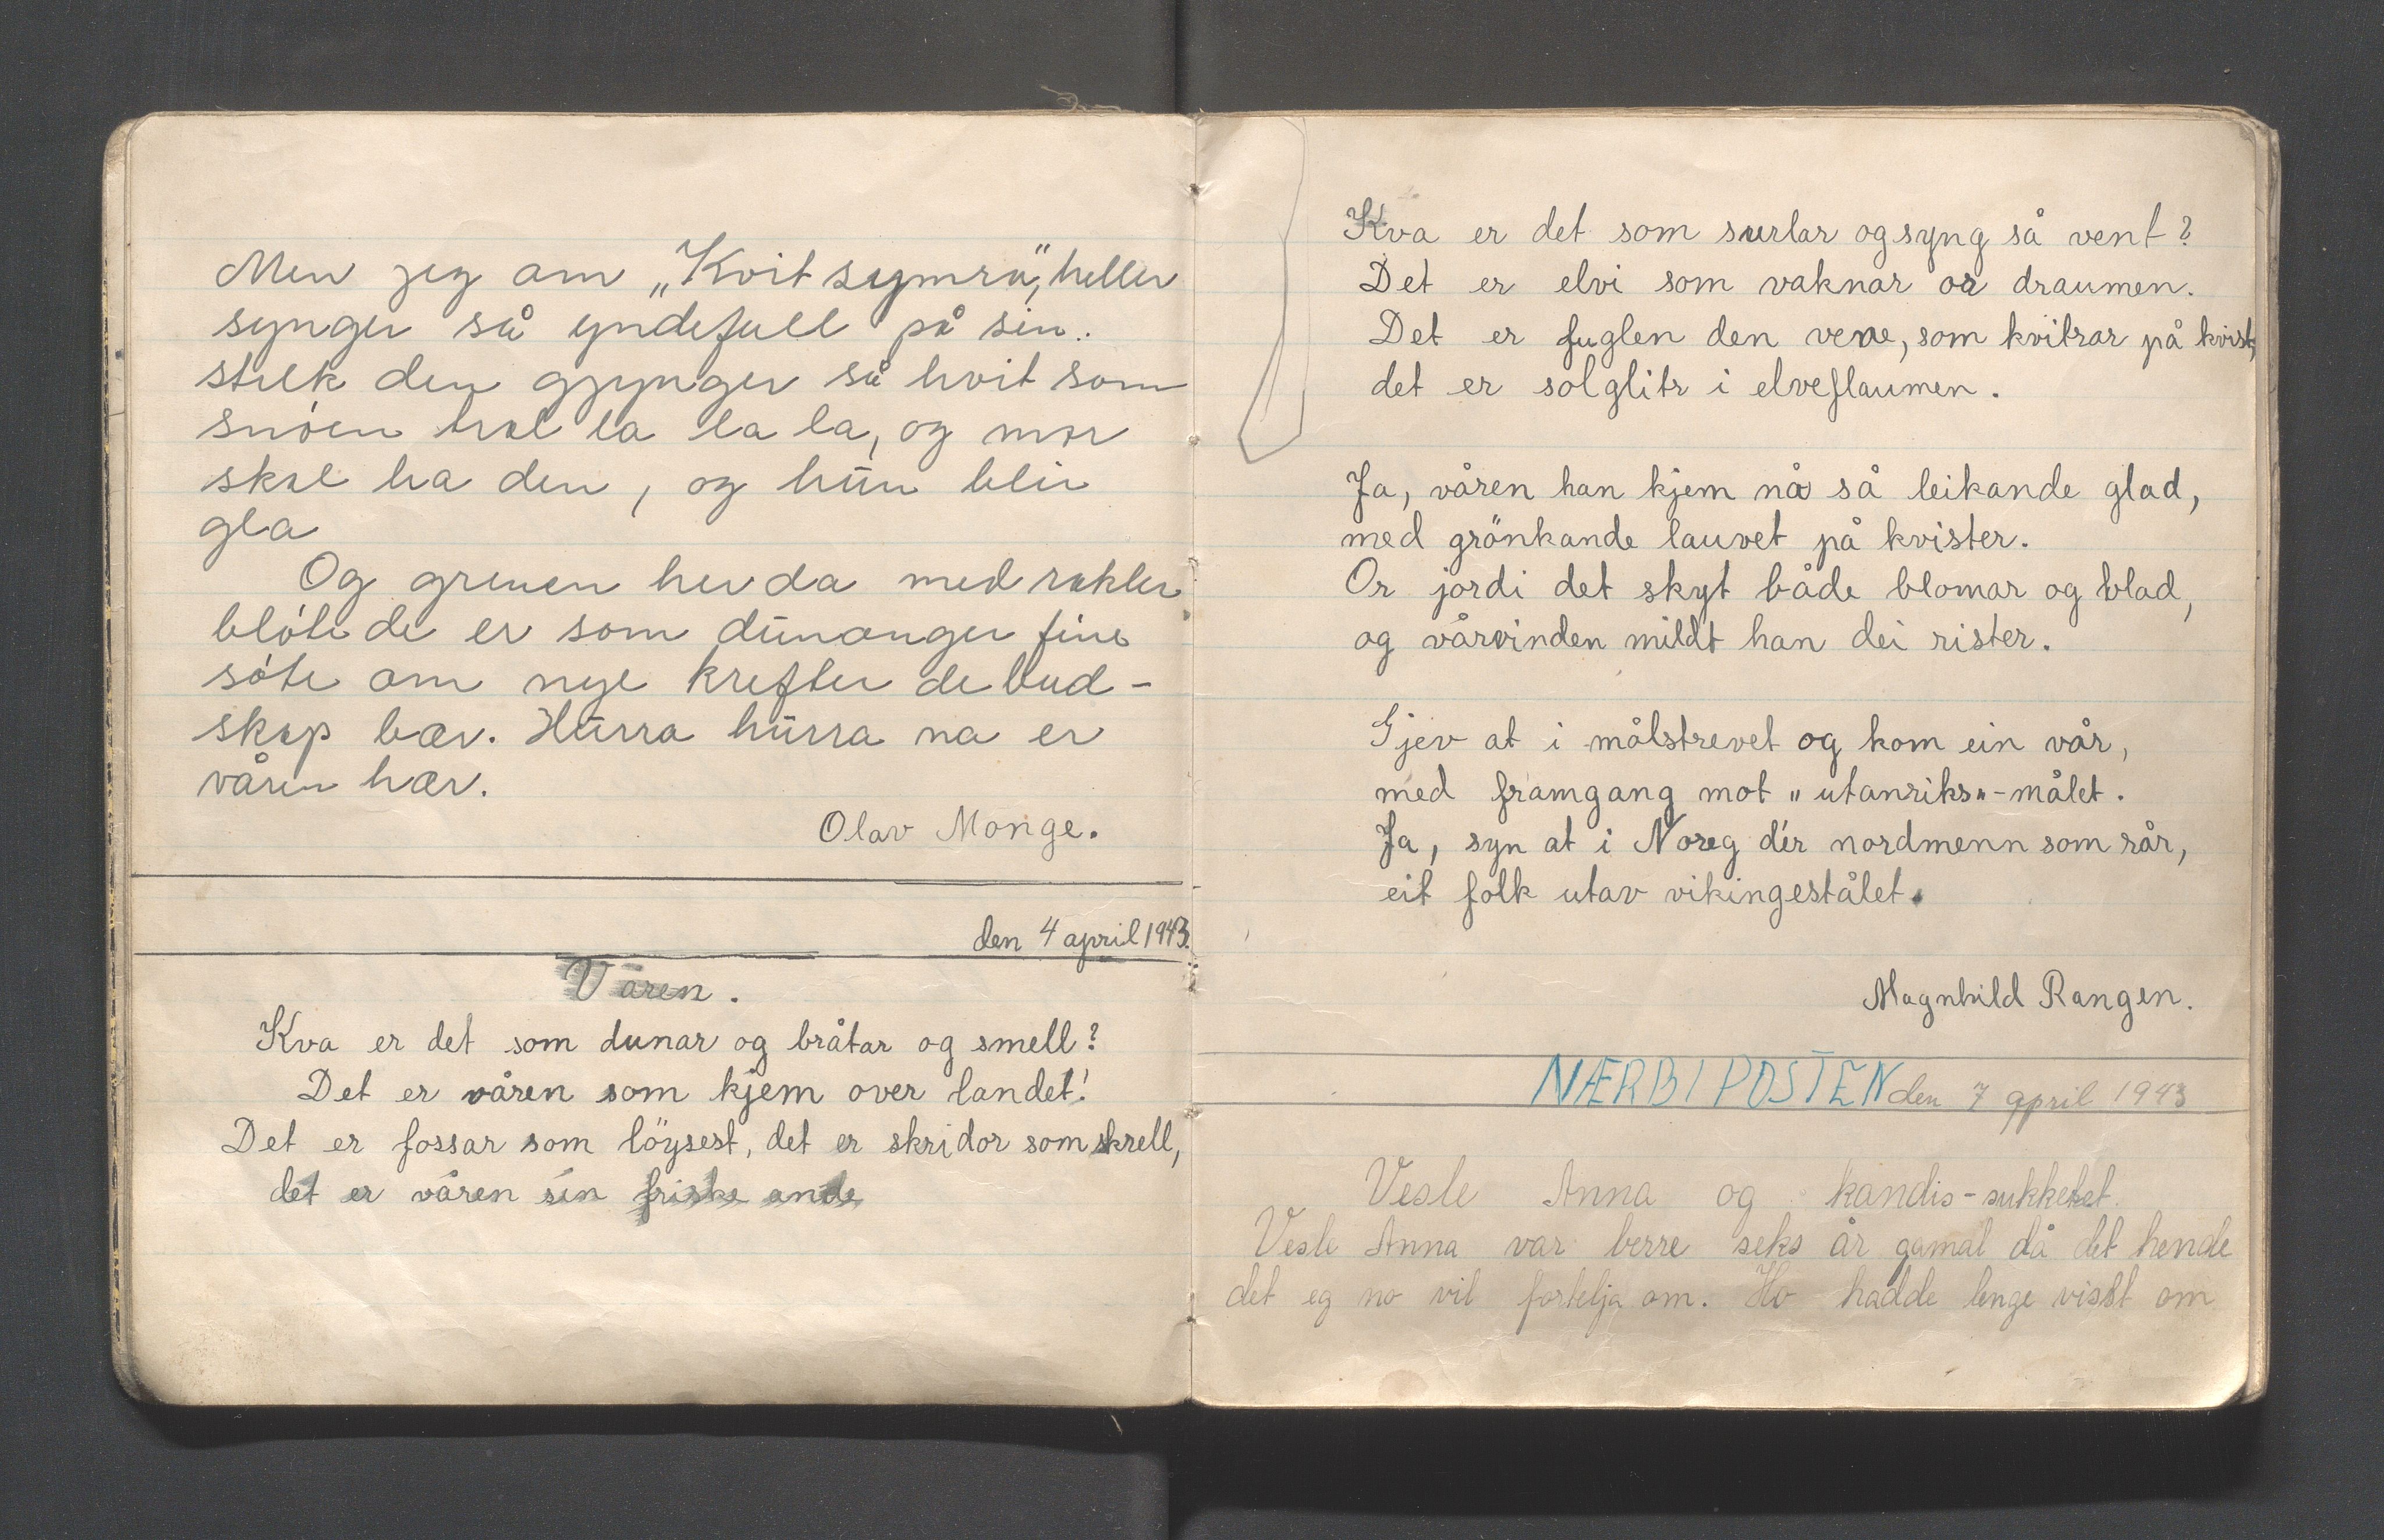 Men jeg om „Kvit symra", heller
synger så yndefull på sin
stilk den gjynger så hvit som
snóen tral la la la, og mor
skal ha den, og hun blir
gla
Og grenen her da med rakler
blóte de er som dunanger fine
sóte om nye krefter de bud-
skap bær. Hurra hurra na er
våren hær.
Olav Monge.
den 4 april 1943.
Våren.
Kva er det som dunar og bråtar og smell?
Det er våren som kjem over landet!
Det er fossar som löysest, det er skridor som skrell,
det er våren sin friske ande
Kva er det som surlar og syng så vent?
Det er elvi som vaknar or draumen.
Det er fuglen den vene, som kvitrar på kvist,
det er solglitr i elveflaumen.
Ja, våren han kjem nå så leikande glad,
med grönkande lauvet på kvister.
Or jordi det skyt både blomar og blad,
og vårvinden mildt han dei rister.
Gjev at i målstrevet og kom ein vår,
med framgang mot „utanriks"-målet.
Ja, syn at i Noreg d'er nordmenn som rår,
eit folk utav vikingestålet.
Magnhild Rangen.
NÆRBIPOSTEN den 7 april 1943
Vesle Anna og kandis-sukkeret.
Vesle Anna var berre seks år gamal då det hende
det eg no vil fortelja om. Ho hadde lenge visst om